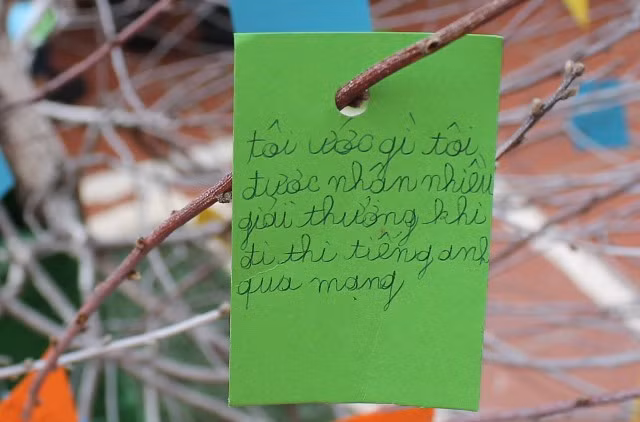 tôi ước gì tôi
được nhận nhiều
giải thưởng khi
đi thi tiếng anh
qua mạng